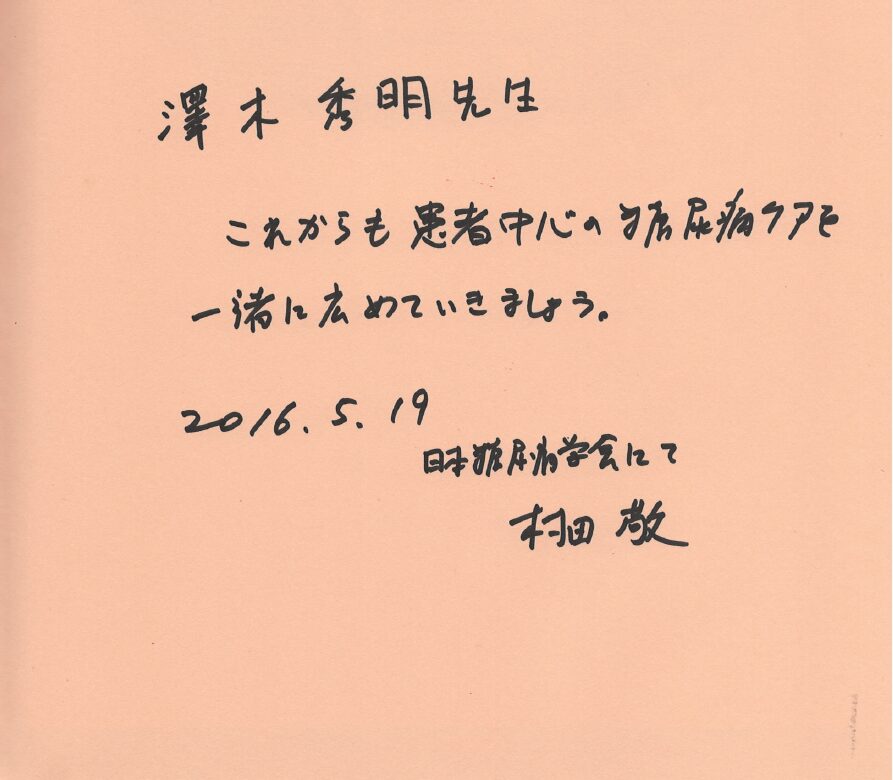 澤木秀明先生
これからも患者中心の糖尿病ケアを
一緒に広めていきましょう。
2016.5.19
日本糖尿病学会にて
村田 敬